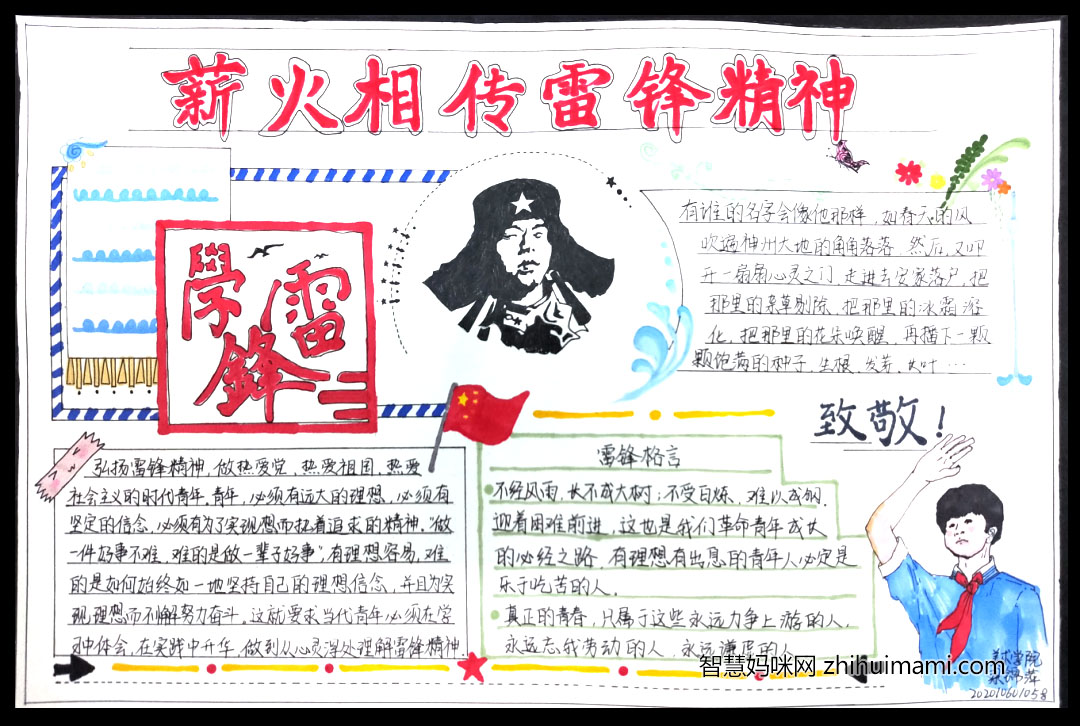 薪火相传雷锋精神
學雷鋒
有谁的名字会像他那样，如春天的风
吹遍神州大地的角角落落，然后，又叩
开一扇扇心灵之门，走进去安家落户，把
那里的杂草剔除，把那里的冰霜溶
化，把那里的花朵唤醒，再播下一颗
颗饱满的种子，生根，发芽，长叶…
致敬！
弘扬雷锋精神，做热爱党，热爱祖国，热爱
社会主义的时代青年。青年，必须有远大的理想，必须有
坚定的信念，必须有为了实现想而执着追求的精神。“做
一件好事不难，难的是做一辈子好事”，有理想容易，难
的是如何始终如一地坚持自己的理想信念，并且为实
现理想而不懈努力奋斗。这就要求当代青年必须在学
习中体会，在实践中升华，做到从心灵深处理解雷锋精神
雷锋格言
不经风雨，长不成大树；不受百炼，难以成钢，
迎着困难前进，这也是我们革命青年成长
的必经之路，有理想有出息的青年人必定是
乐于吃苦的人.
真正的青春，只属于这些永远力争上游的人，
永远忘我劳动的人，永远谦虚的人
智慧妈咪网 zhihuimami.com
美术学院
202010601058